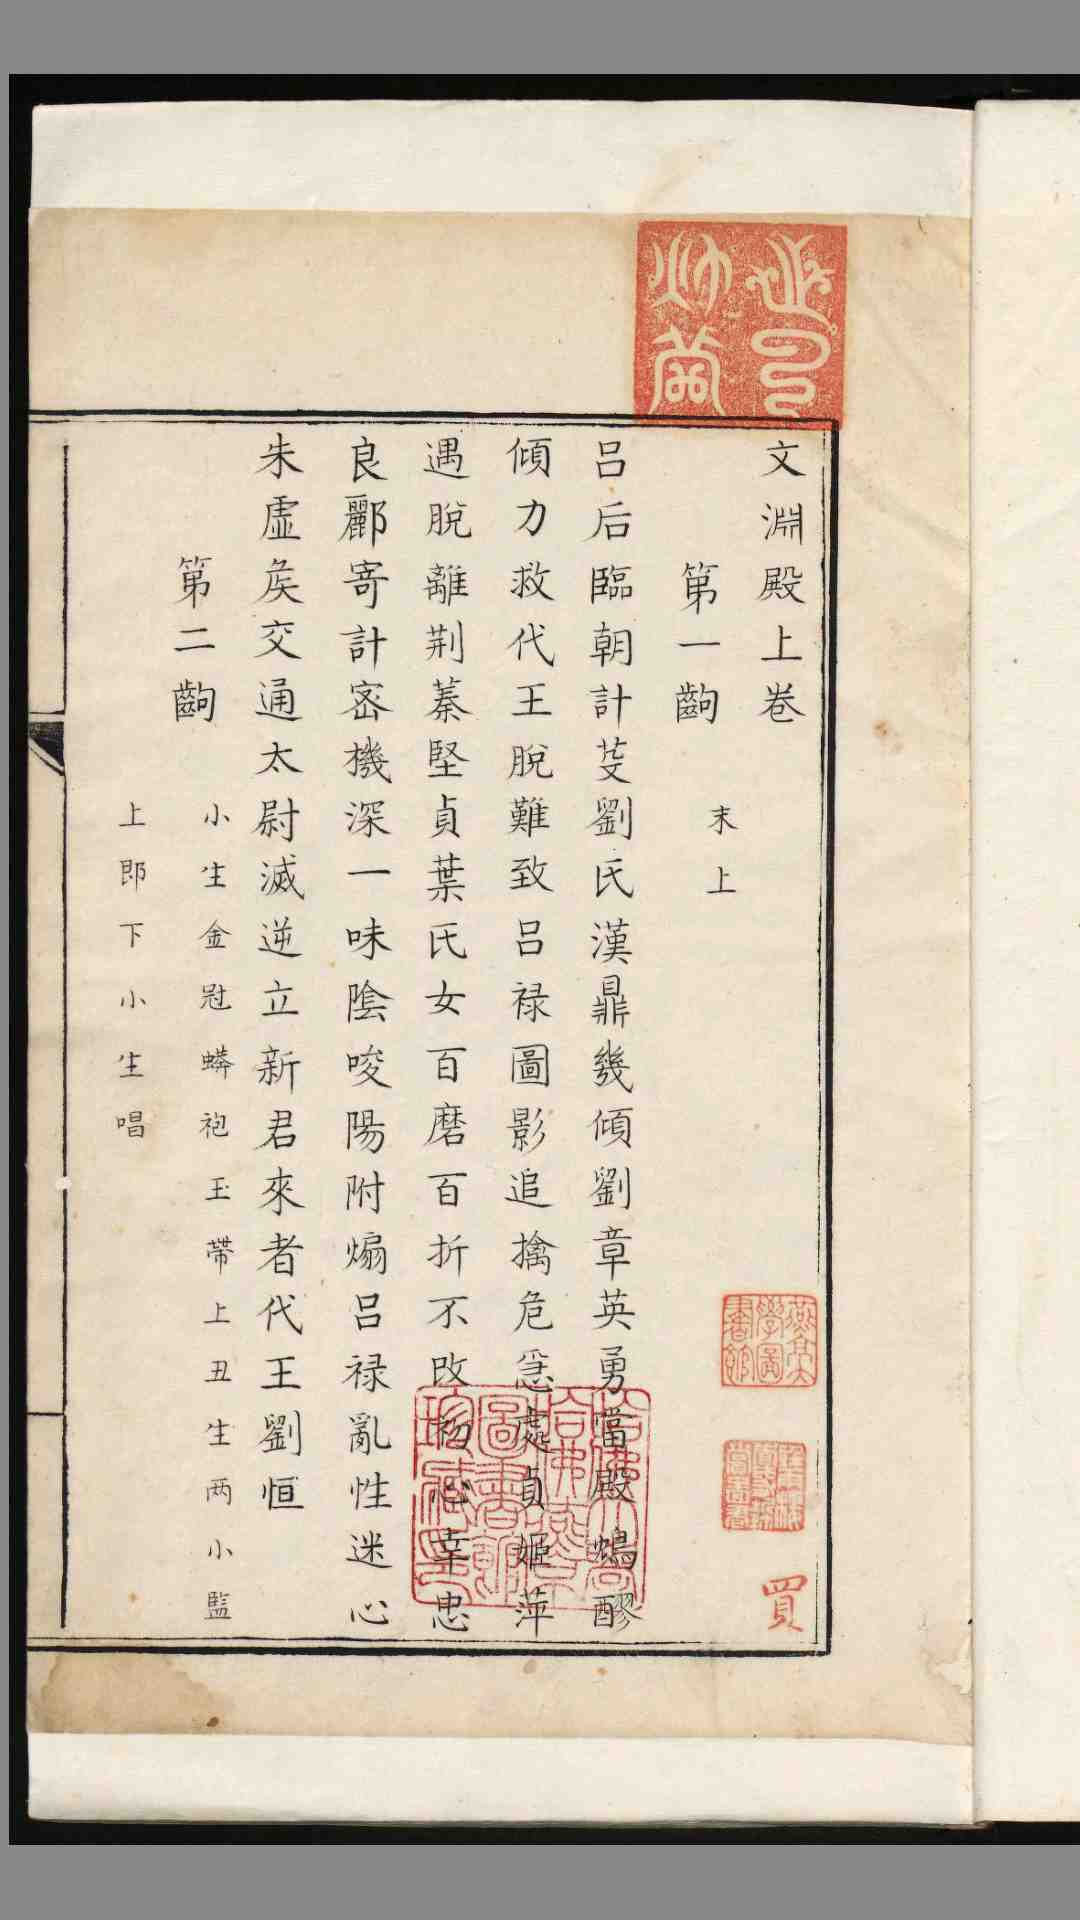 文淵殿上卷
第一齣 末上
呂后臨朝計芟劉氏漢鼎幾傾劉章英勇當殿鴆醪
傾力救代王脫難致呂祿圖影追擒危急處貞姬萍
遇脫離荆蓁堅貞葉氏女百磨百折不改初心幸忠
良酈寄計密機深一味陰唆陽附煽呂祿亂性迷心
朱虛矦交通太尉滅逆立新君來者代王劉恒
第二齣 小生金冠蟒袍玉帶上丑生两小監
上郎下小生唱
燕京大學圖書館
哈佛大學哈佛燕京圖書館珍藏印
買